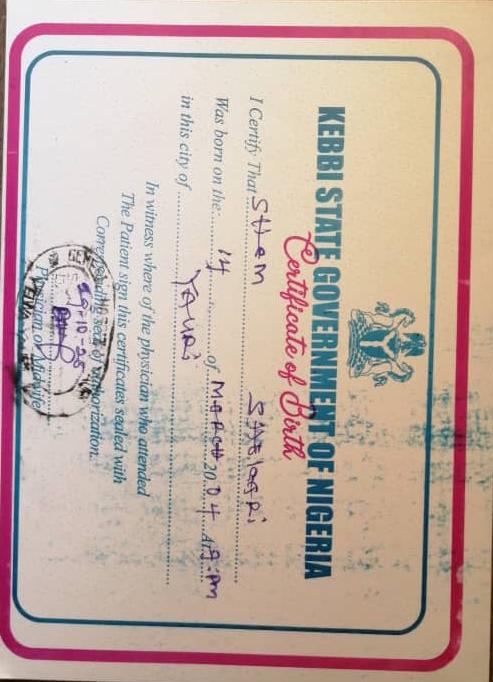 KEBBI STATE GOVERNMENT OF NIGERIA
Certificate of Birth
I Certify That
Was born on the: 14 of MARCH 20 04 At 9:pm
in this city of Yauri
In witness where of the physician who attended
The Patient sign this certificates sealed with
Corresponding seal of authorization.
Physician or Midwife